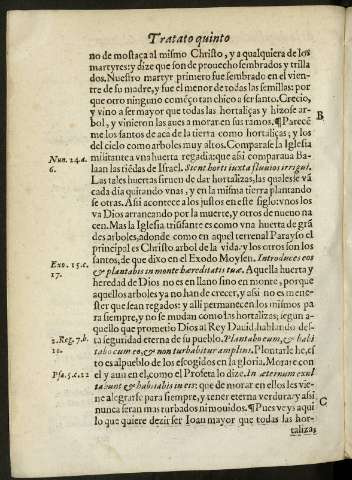 Tratato quinto
no de mostaça al mismo Christo, y a qualquiera de los
martyres: y dize que son de prouecho sembrados y trilla
dos. Nuestro martyr primero fue sembrado en el vien-
tre de su madre, y fue el menor de todas las semillas: por
que otro ninguno començo tan chico a ser santo. Crecio,
y vino a ser mayor que todas las hortaliças y hizose ar-
bol, y vinieron las aues a morar en sus ramos. ¶ Parece
B
me los santos de aca de la tierra como hortaliças; y los
del cielo como arboles muy altos. Comparase la Iglesia
militante a vna huerta regadia: que assi comparaua Ba-
Nun. 24. a.
6.
laan las tiẽdas de Israel. Sicut horti iuxta fluuios irrigui.
Las tales huertas siruen de dar hortalizas, las quales se vã
cada dia quitando vnas, y en la misma tierra plantando
se otras. Assi acontece a los justos en este siglo: vnos los
va Dios arrancando por la muerte, y otros de nueuo na
cen. Mas la Iglesia trisante es como vna huerta de grã
des arboles, adonde como en aquel terrenal Parayso el
principal es Christo arbol de la vida: y los otros son los
santos, de que dixo en el Exodo Moysen. Introduces eos
Exo. 15. c.
17.
& plantabis in monte hæreditatis tuæ. Aquella huerta y
heredad de Dios no es en llano sino en monte, porque
aquellos arboles ya no han de crecer, y assi no es mene-
ster que sean regados: y alli permanecen los mismos pa
ra siempre, y no se mudan como las hortalizas; segun a-
quello que prometio Dios al Rey Dauid, hablando des-
ta seguridad eterna de su pueblo. Plantabo eum, & habi
2. Reg. 7. b.
10.
tabo cum eo, & non turbabitur amplius. Plontarle he, (es
to es al pueblo de los escogidos en la gloria, Morare con
el y aun en el, como el Profeta lo dize. In æternum exul
Psa. 5. c. 12
tabunt & habitabis in eis: que de morar en ellos les vie-
ne alegrarse para siempre, y tener eterna verdura: y assi
nunca seran mas turbados ni mouidos. ¶ Pues veys aqui
C
lo que quiere dezir ser Ioan mayor que todas las hor-
talizas